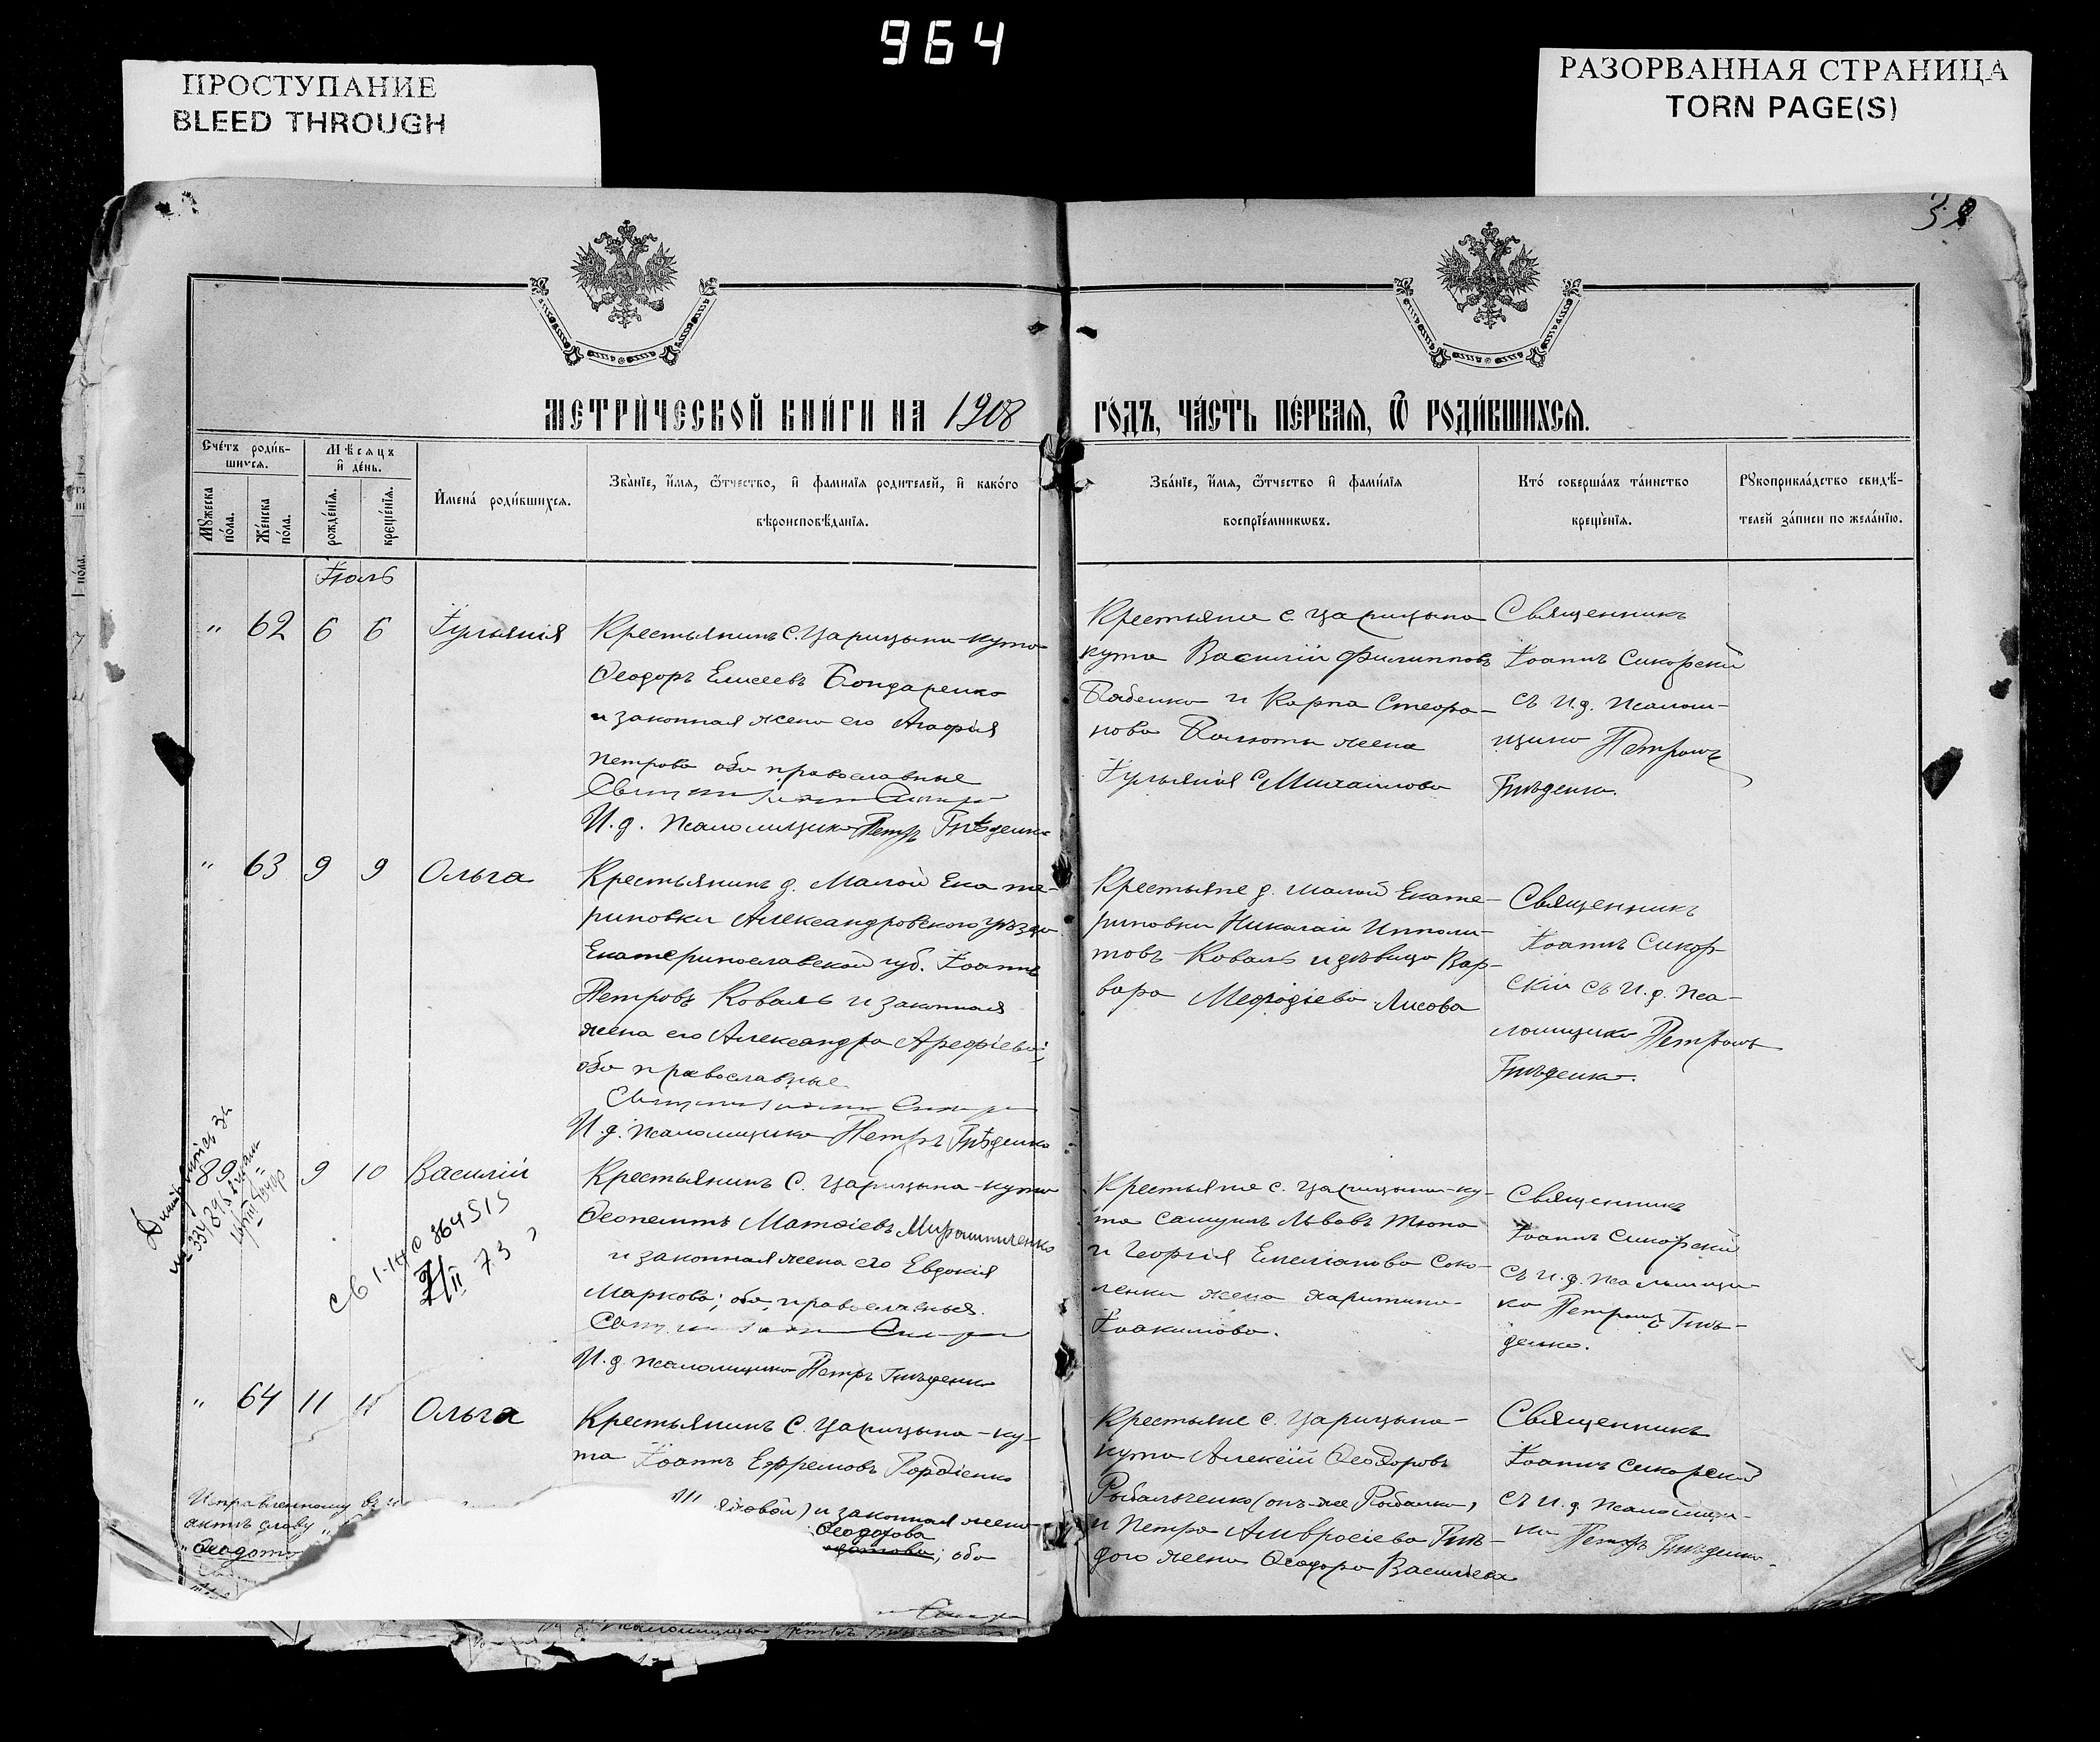 964
ПРОСТУПАНИЕ
BLEED THROUGH
РАЗОРВАННАЯ СТРАНИЦА
TORN PAGE(S)
38
МЕТРИЧЕСКОЙ КНИГИ НА 1908
ГОДЪ, ЧАСТЬ ПЕРВАЯ, Ѿ РОДИВШИХСЯ.
Счетъ родив-
шихся.
Мѣсяцъ
и день.
Мужеска
пола.
Женска
пола.
рожденія.
крещенія.
Имена родившихся.
Званіе, имя, ѿтчество, и фамилія родителей, и какого
вѣроисповѣданія.
Званіе, имя, ѿтчество и фамилія
воспріемниковъ.
Кто совершалъ таинство
крещенія.
Рукоприкладство свидѣ-
телей записи по желанію.
Іюль
" 62 6 6 Іуліанія
Крестьянинъ с. Царицына-кута
Ѳеодоръ Елисеевъ Бондаренко
и законная жена его Агафія
Петрова оба православные
И.д. псаломщика Петръ Гнѣденко
Крестьяне с. Царицына
кута Василій Филипповъ
Бабенко и Карпа Стефа-
нова жена
Іуліанія Михаилова
Священникъ
Іоаннъ Сикорскій
съ И.д. псалом-
щика Петромъ
Гнѣденко.
" 63 9 9 Ольга
Крестьянинъ д. Малой Екате-
риновки Александровскаго уѣзда
Екатеринославской губ. Іоаннъ
Петровъ Коваль и законная
жена его Александра Арефіева;
оба православные
И.д. псаломщика Петръ Гнѣденко
Крестьяне д. Малой Екате-
риновки Николай Иполи-
товъ Коваль и дѣвица Вар-
вара Меѳодіева Лисова
Священникъ
Іоаннъ Сикор-
скій съ И.д. пса-
ломщика Петромъ
Гнѣденко.
89 9 10 Василій
Крестьянинъ с. Царицына-кута
Ѳеопемптъ Матѳіевъ Мирошниченко
и законная жена его Евдокія
Маркова; оба православные.
И.д. псаломщика Петръ Гнѣденко
Крестьяне с. Царицына-ку-
та Самуилъ Львовъ Тюпа
и Георгія Емеліанова Соко-
ленка жена Харитина
Іоакимова.
Священникъ
Іоаннъ Сикорскій
съ И.д. псаломщи-
ка Петромъ Гнѣ-
денко.
" 64 11 11 Ольга
Крестьянинъ с. Царицына-ку-
та Іоаннъ Ефремовъ Гордіенко
и законная жена
Ѳеодорова
; оба
Крестьяне с. Царицына-
кута Алексій Ѳеодоровъ
Рыбальченко (онъ-же Рыбалко)
и Петра Амвросіева Гнѣ-
дого жена Ѳеодора Василіева
Священникъ
Іоаннъ Сикорскій
съ И.д. псаломщи-
ка Петръ Гнѣденко.
Исправленному въ
актѣ слову